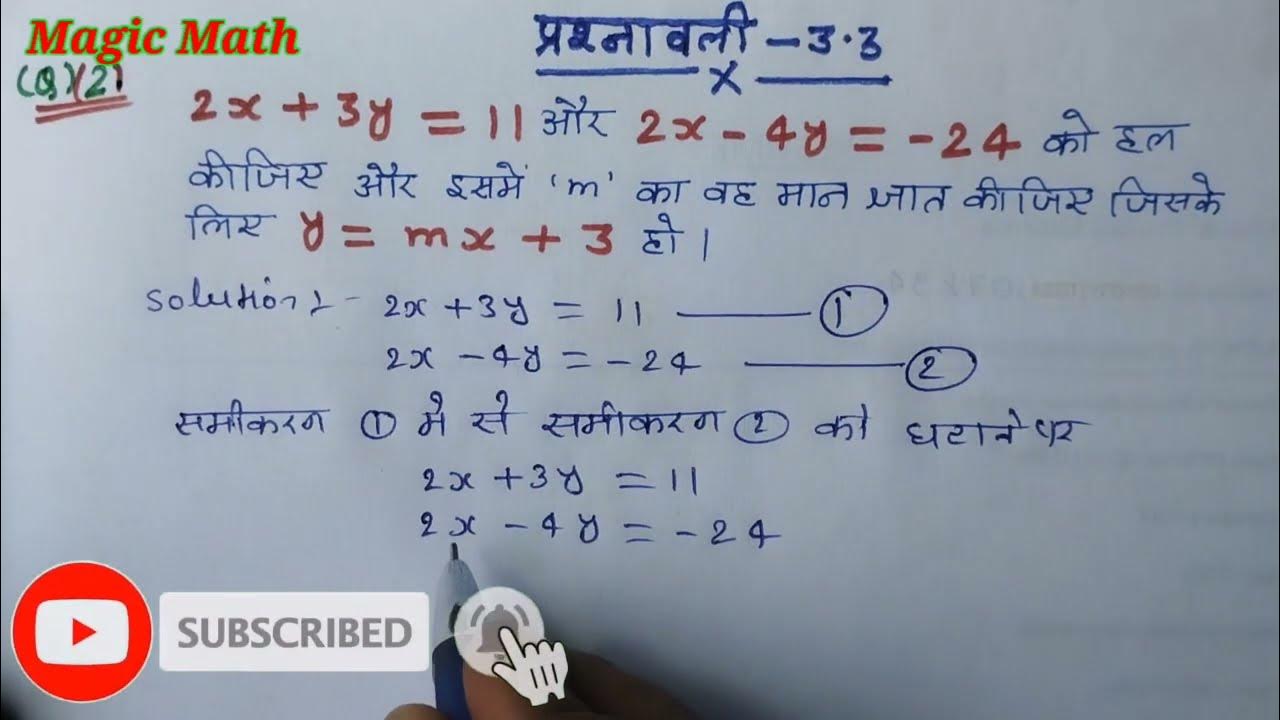 Magic Math
प्रश्नावली - 3.3
x
(Q)(2)
2x + 3y = 11 और 2x - 4y = -24 को हल
कीजिए और इसमें 'm' का वह मान ज्ञात कीजिए जिसके
लिए y = mx + 3 हो।
Solution :- 2x + 3y = 11 —— ①
2x - 4y = -24 —— ②
समीकरण ① मे से समीकरण ② को घटाने पर
2x + 3y = 11
2x - 4y = -24
SUBSCRIBED